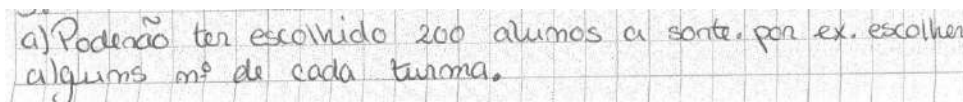 a) Poderão ter escolhido 200 alunos a sorte. por ex. escolher
alguns nº de cada turma.